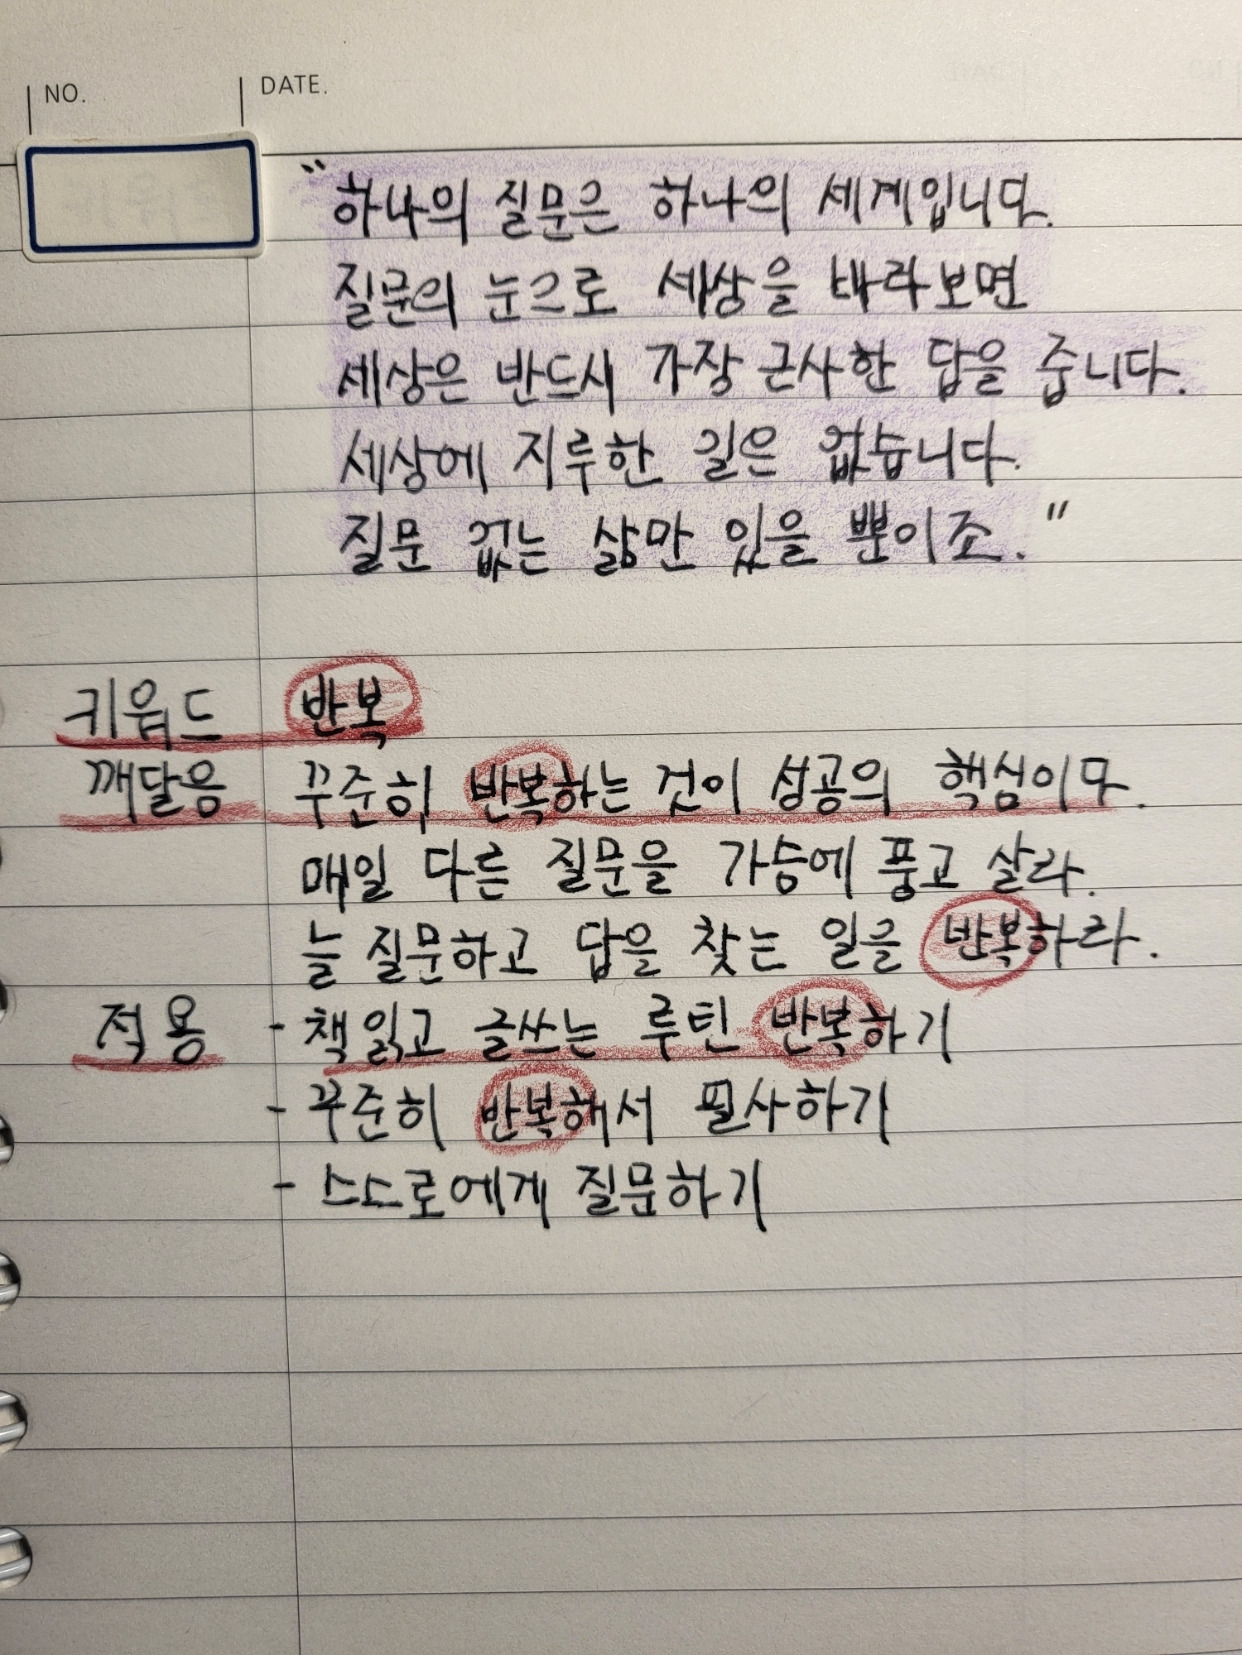 NO. DATE.
"하나의 질문은 하나의 세계입니다.
질문의 눈으로 세상을 바라보면
세상은 반드시 가장 근사한 답을 줍니다.
세상에 지루한 길은 없습니다.
질문 없는 삶만 있을 뿐이죠."
키워드 반복
깨달음 꾸준히 반복하는 것이 성공의 핵심이다.
매일 다른 질문을 가슴에 품고 살라.
늘 질문하고 답을 찾는 일을 반복하라.
적용 - 책읽고 글쓰는 루틴 반복하기
- 꾸준히 반복해서 필사하기
- 스스로에게 질문하기